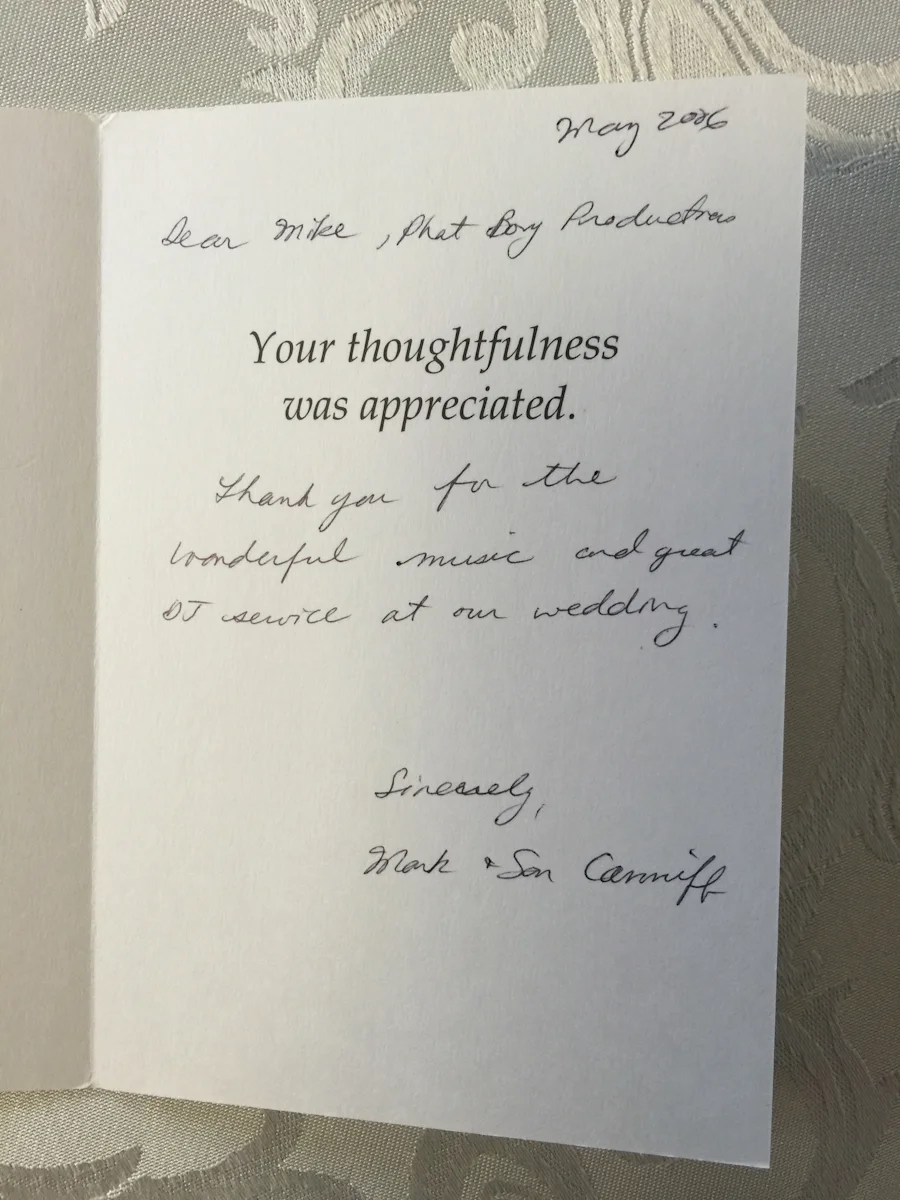 May 2006
Dear Mike, Phat Boy Productions
Your thoughtfulness
was appreciated.
Thank you for the
wonderful music and great
DJ service at our wedding.
Sincerely,
Mark + Son Canniff